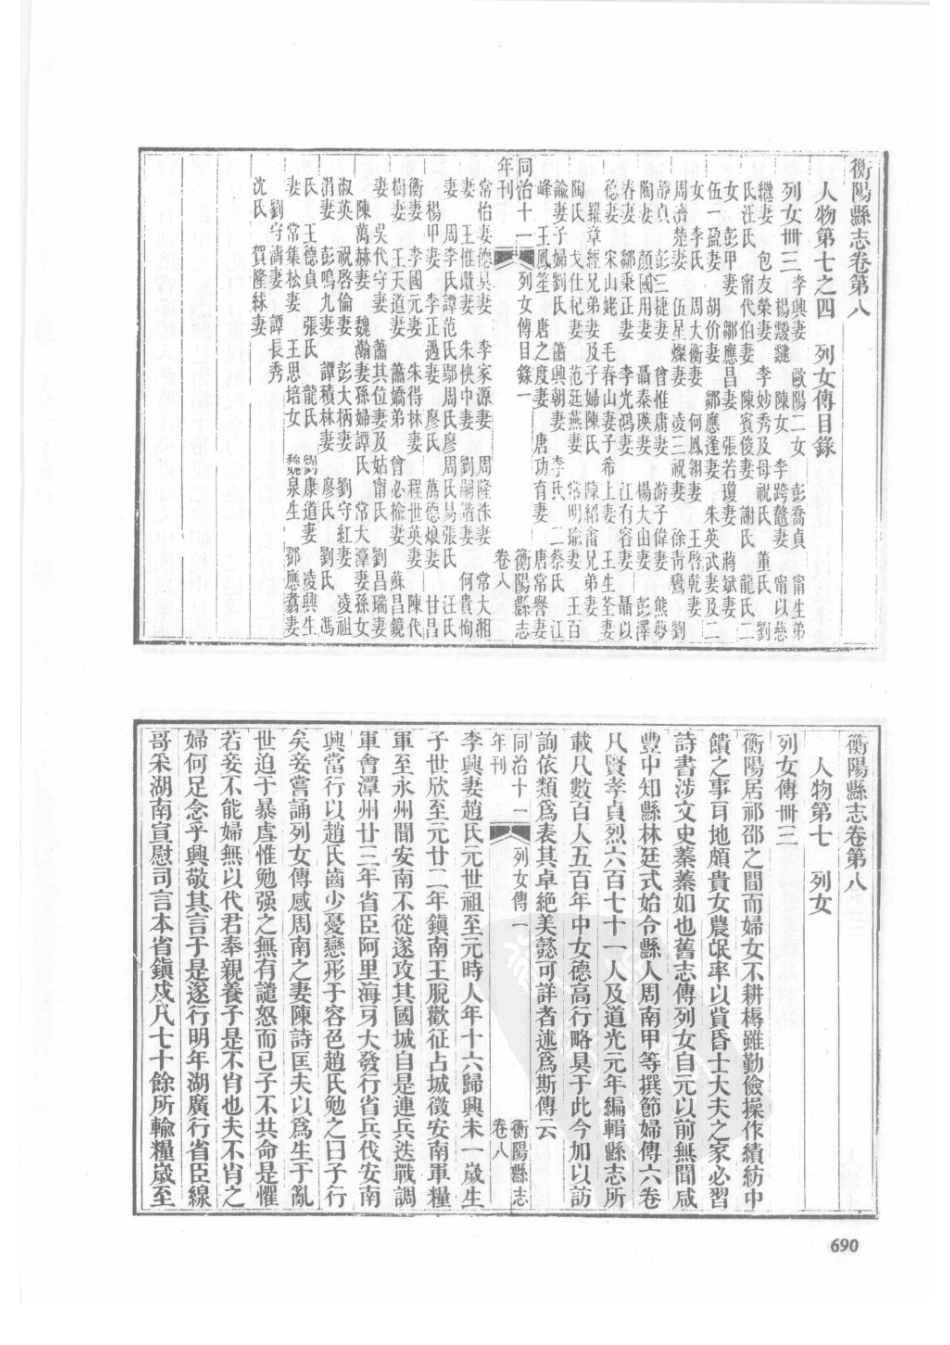 衡陽縣志卷第八
人物第七之四　列女傳目錄
列女卌三
李興妻　歐陽二女　彭喬貞　甯生弟
楊靉靆　陳女　李跨鼇妻　甯以慈
繼妻　包友榮妻　李妙秀及母祝氏　董氏　劉
氏汪氏　甯代伯妻　陳賓俊妻　謝氏　龍氏二
女　彭甲妻　鄒應昌妻　張若瓊妻　蔣斌妻
伍一盈妻　胡价妻　鄒應逢妻　朱英武妻及二
女　李氏　周大衡妻　何鳳翎妻　王啓乾妻
周濟楚妻　伍星燦妻　凌三祝妻　徐靑鸞　劉
靜貞　彭三捷妻　曾惟庸妻　游子偉妻　熊夢
陶妻　顏國用妻　聶泰瑛妻　楊大由妻　彭澤
春妻　鄒秉正妻　李光鴻妻　江有容妻　聶以
德妻　宋山姥　毛春山妻子布上妻　王生荃妻
羅章經兄弟妻及子婦陳氏　陳紹兄弟妻
陶氏　戈仕杞妻　范廷燕妻　常明瑜妻　王百
諭妻子婦劉氏　蕭興朝妻　李氏二　蔡氏　江
峰　王鳳笙　唐之度妻　唐功有妻　唐常譽妻
同治十一年刊　列女傳目錄一　衡陽縣志卷八
常怡妻德具妻　李家源妻　周隆洙妻　常大湘
妻　王惟馘妻　朱怏中妻　劉嗣諧妻　何貴恂
妻　周李氏譚范氏鄢周氏廖周氏易張氏　汪氏
楊甲妻　李正遇妻　廖氏　萬德娘妻　甘昌
衡妻　李國元妻　朱得林妻　程世英妻　陳代
樹妻　王天道妻　蕭嬌弟　曾必棆妻　蘇昌鏡
妻　吳代守妻　蕭其位妻及姑甯氏　劉昌瑞妻
陳萬赫妻　魏瀚妻孫婦譚氏　常大淳妻孫女
淑英　祝啓倫妻　彭大柄妻　劉守紅妻　凌祖
涓妻　彭鳴九妻　譚積林妻　廖氏　劉氏　馮
氏　王德貞　張氏　龍氏　劉康道妻　凌興生
妻　常集松妻　王思培女　魏泉生　鄧應翥妻
劉守濤妻　譚長秀
沈氏　賀隆絿妻
衡陽縣志卷第八
人物第七　列女
列女傳卌三
衡陽居祁邵之間而婦女不耕耨雖勤儉操作績紡中
饋之事耳地頗貴女農氓率以貲昏士大夫之家必習
詩書涉文史蓁蓁如也舊志傳列女自元以前無聞咸
豐中知縣林廷式始令縣人周南甲等撰節婦傳六卷
凡賢孝貞烈六百七十一人及道光元年編輯縣志所
載凡數百人五百年中女德高行略具于此今加以訪
詢依類爲表其卓絕美懿可詳者述爲斯傳云
同治十一年刊　列女傳一　衡陽縣志卷八
李興妻趙氏元世祖至元時人年十六歸興未一歲生
子世欣至元廿二年鎭南王脫歡征占城徵安南軍糧
軍至永州聞安南不從遂攻其國城自是連兵迭戰調
軍會潭州廿三年省臣阿里海牙大發行省兵伐安南
興當行以趙氏齒少憂戀形于容色趙氏勉之曰子行
矣妾嘗誦列女傳感周南之妻陳詩匡夫以爲生于亂
世迫于暴虐惟勉强之無有譴怒而已子不共命是懼
若妾不能婦無以代君奉親養子是不肖也夫不肖之
婦何足念乎興敬其言于是遂行明年湖廣行省臣線
哥釆湖南宣慰司言本省鎭戍凡七十餘所輸糧歲至
690